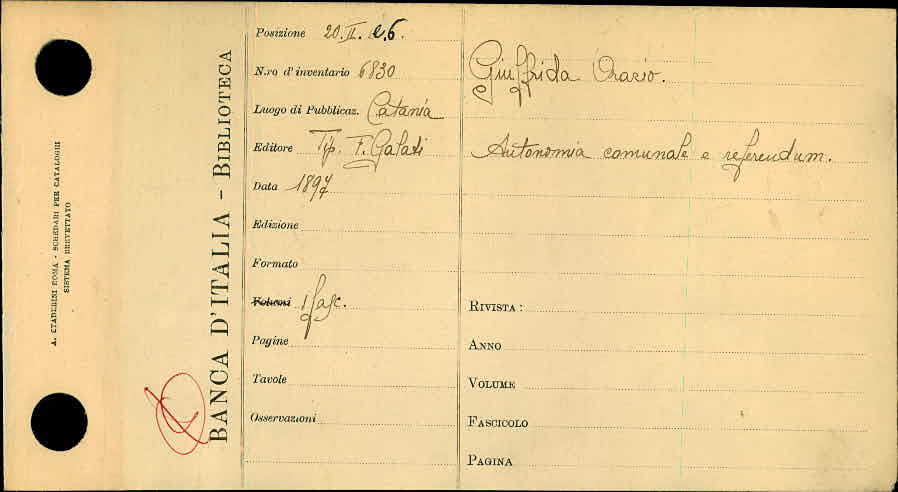 A. STADERINI ROMA - SCHEDARI PER CATALOGHI
SISTEMA BREVETTATO
BANCA D'ITALIA - BIBLIOTECA
Posizione 20. II. e.6.
N.ro d'inventario 6830
Luogo di Pubblicaz. Catania
Editore Tip. F. Galati
Data 1897
Edizione
Formato
Volumi 1 fasc.
Pagine
Tavole
Osservazioni
Giuffrida Orazio.
Autonomia comunale e referendum.
RIVISTA :
ANNO
VOLUME
FASCICOLO
PAGINA